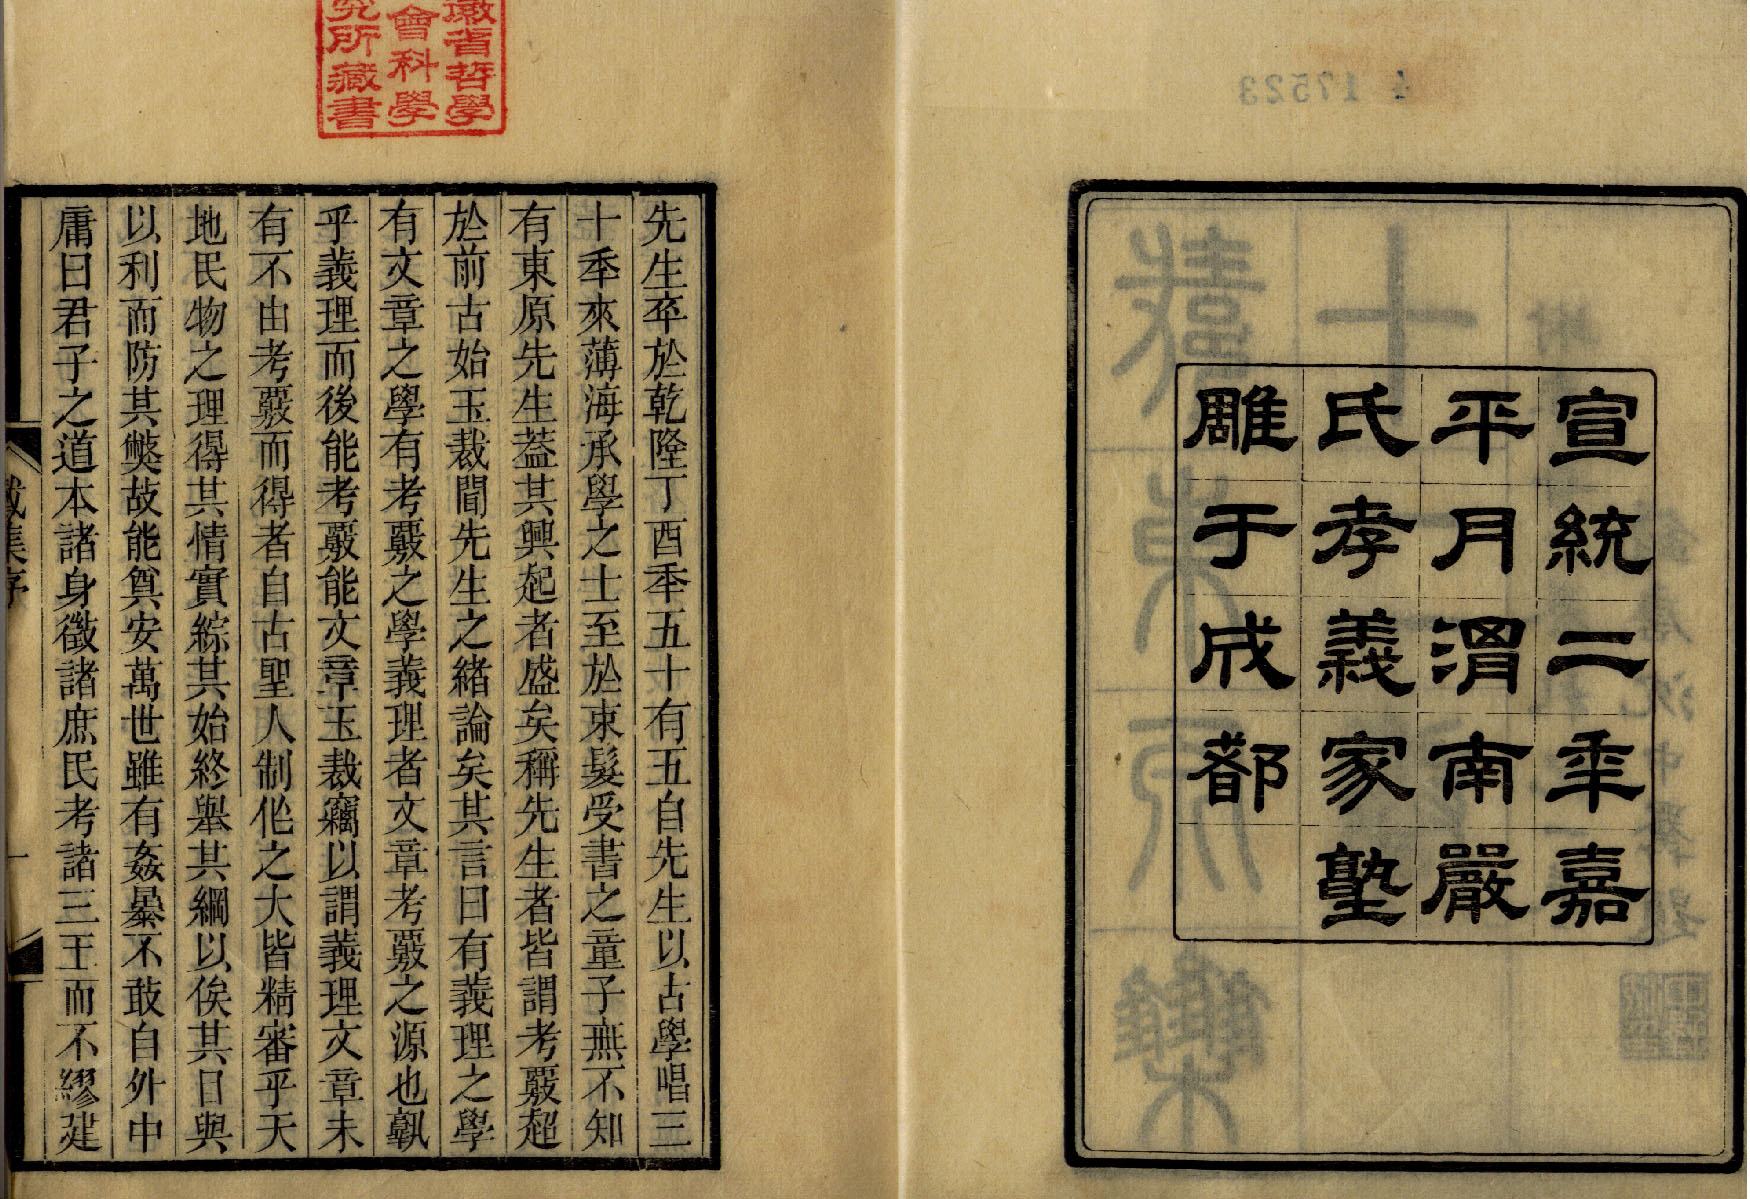 宣統二年嘉
平月渭南嚴
氏孝義家塾
雕于成都
4 17523
徽省哲學
會科學
究所藏書
先生卒於乾隆丁酉秊五十有五自先生以古學唱三
十秊來薄海承學之士至於束髮受書之童子無不知
有東原先生蓋其興起者盛矣稱先生者皆謂考覈超
於前古始玉裁聞先生之緒論矣其言曰有義理之學
有文章之學有考覈之學義理者文章考覈之源也孰
乎義理而後能考覈能文章玉裁竊以謂義理文章未
有不由考覈而得者自古聖人制作之大皆精審乎天
地民物之理得其情實綜其始終舉其綱以俟其目與
以利而防其獘故能奠安萬世雖有姦暴不敢自外中
庸曰君子之道本諸身徵諸庶民考諸三王而不繆建
戴集序
一